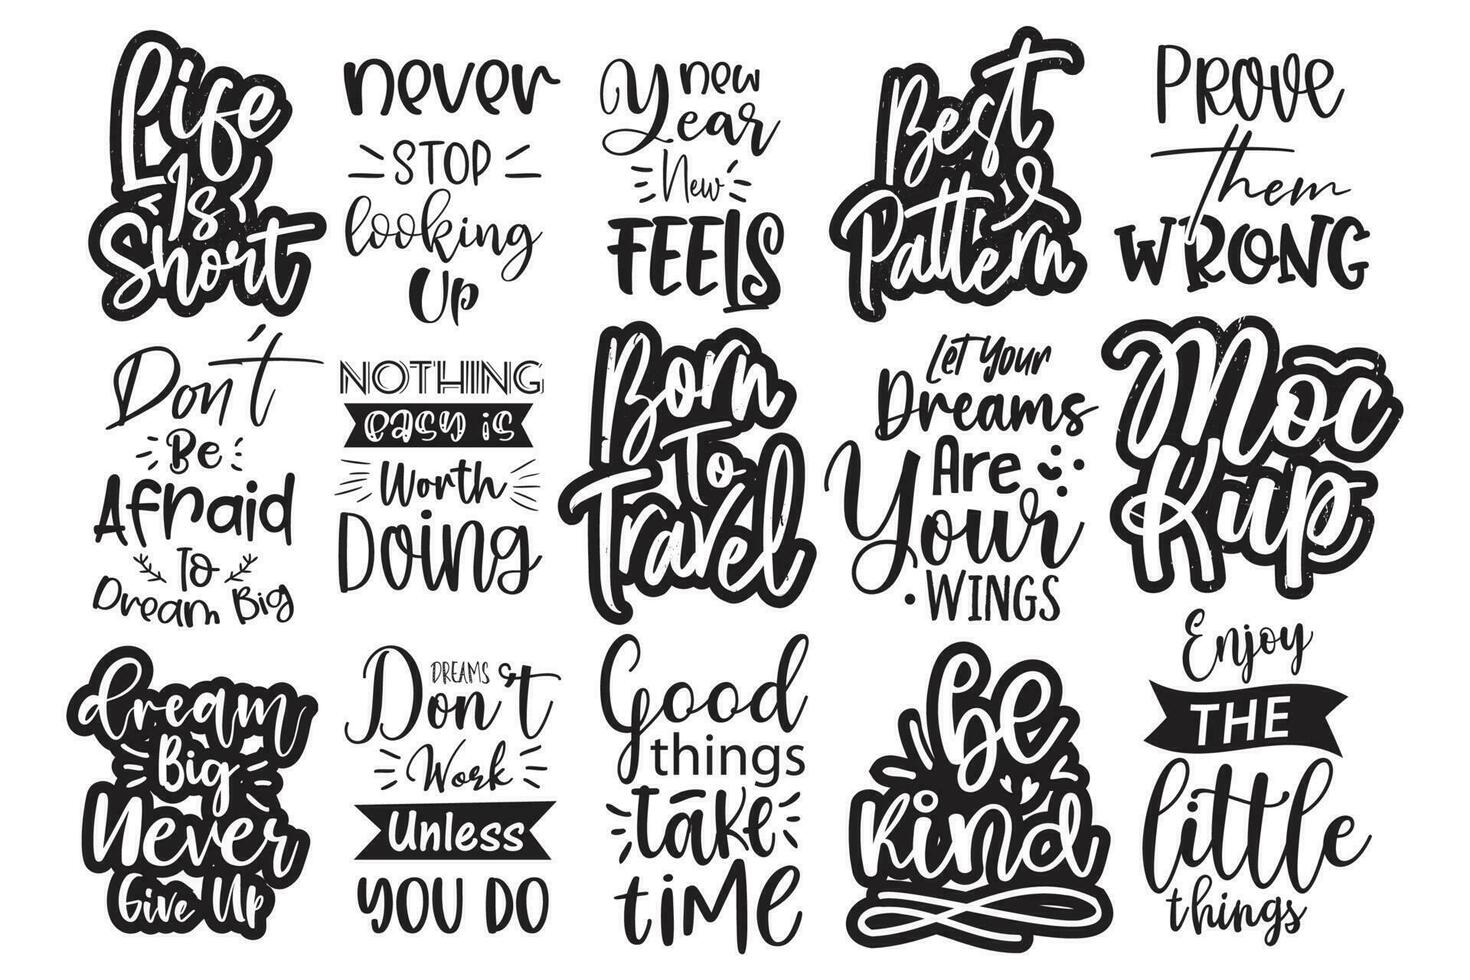 Life
Is
Short
never
STOP
looking
Up
new
Year
New
FEELS
Best
Pattern
PROVE
Them
WRONG
Don't
Be
Afraid
To
Dream Big
NOTHING
easy is
Worth
DOING
Born
To
Travel
Let Your
Dreams
Are
Your
WINGS
Moc
Kup
dream
Big
Never
Give Up
DREAMS
Don't
Work
Unless
YOU DO
Good
things
take
time
be
kind
Enjoy
THE
little
things